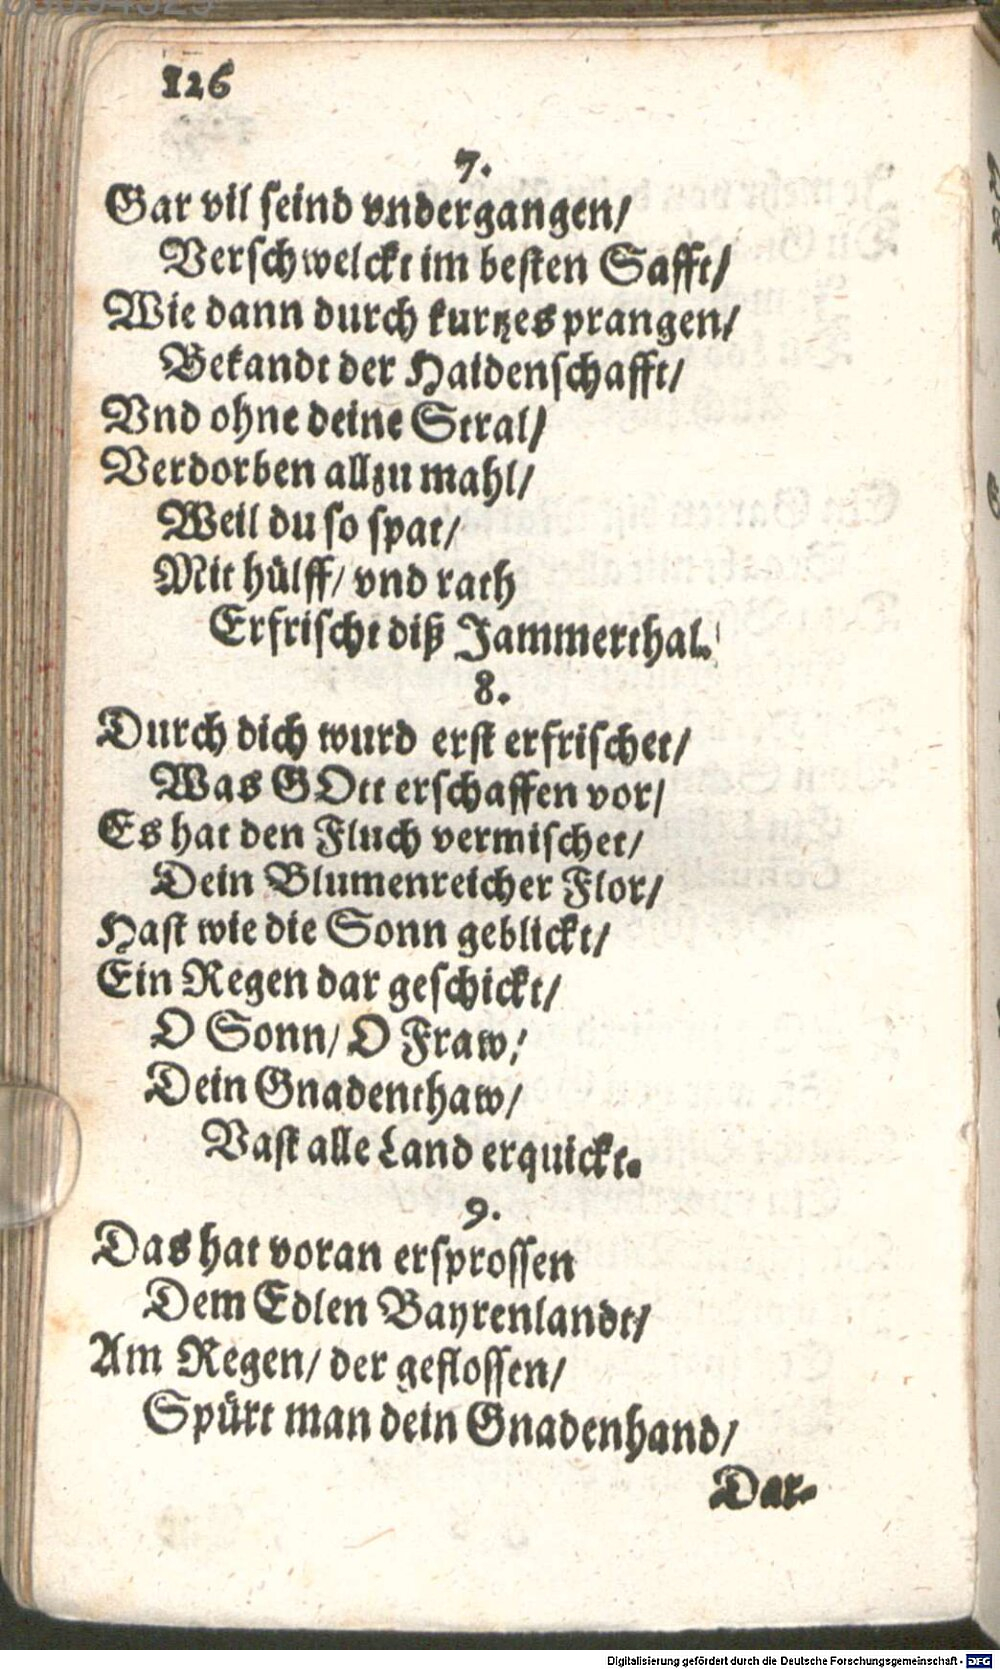 126
7.
Gar vil seind vndergangen/
Verschwelckt im besten Safft/
Wie dann durch kurtzes prangen/
Bekandt der Haidenschafft/
Vnd ohne deine Stral/
Verdorben allzu mahl/
Weil du so spat/
Mit hülff/ vnd rath
Erfrischt diß Jammerthal.
8.
Durch dich wurd erst erfrischet/
Was GOtt erschaffen vor/
Es hat den Fluch vermischet/
Dein Blumenreicher Flor/
Hast wie die Sonn geblickt/
Ein Regen dar geschickt/
O Sonn/ O Fraw/
Dein Gnadenthaw/
Vast alle Land erquickt.
9.
Das hat voran ersprossen
Dem Edlen Bayrenlandt/
Am Regen/ der geflossen/
Spürt man dein Gnadenhand/
Dar-
Digitalisierung gefördert durch die Deutsche Forschungsgemeinschaft - DFG